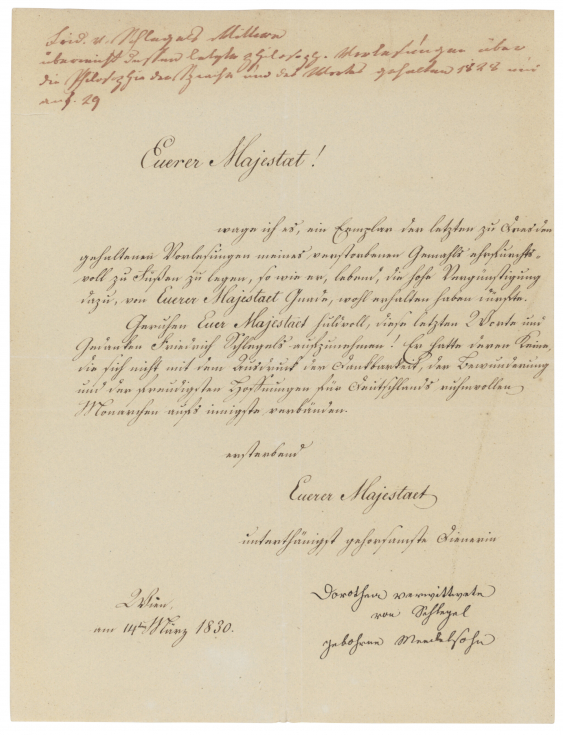 Frid. v. Schlegels Wittwe
überreicht dessen letzte philosoph. Vorlesungen über
die Philosophie der Sprache und des Wortes gehalten 1828 und
anf. 29
Euerer Majestaet!
wage ich es, ein Exemplar der letzten zu Dresden
gehaltenen Vorlesungen meines verstorbenen Gemahls ehrfurchts-
voll zu Füßen zu legen, so wie er, lebend, die hohe Vergünstigung
dazu, von Euerer Majestaet Gnade, wohl erhalten haben dürfte.
Geruhen Euer Majestaet huldvoll, diese letzten Worte und
Gedanken Friedrich Schlegels aufzunehmen! Er hatte deren Keine,
die sich nicht mit dem Ausdruck der Dankbarkeit, der Bewunderung
und der freudigsten Hoffnungen für Deutschlands ruhmvollen
Monarchen aufs innigste verbänden.
ersterbend
Euerer Majestaet
unterthänigst gehorsamste Dienerin
Dorothea verwittwete
von Schlegel
gebohrne Mendelsohn
Wien,
am 14ten März 1830.